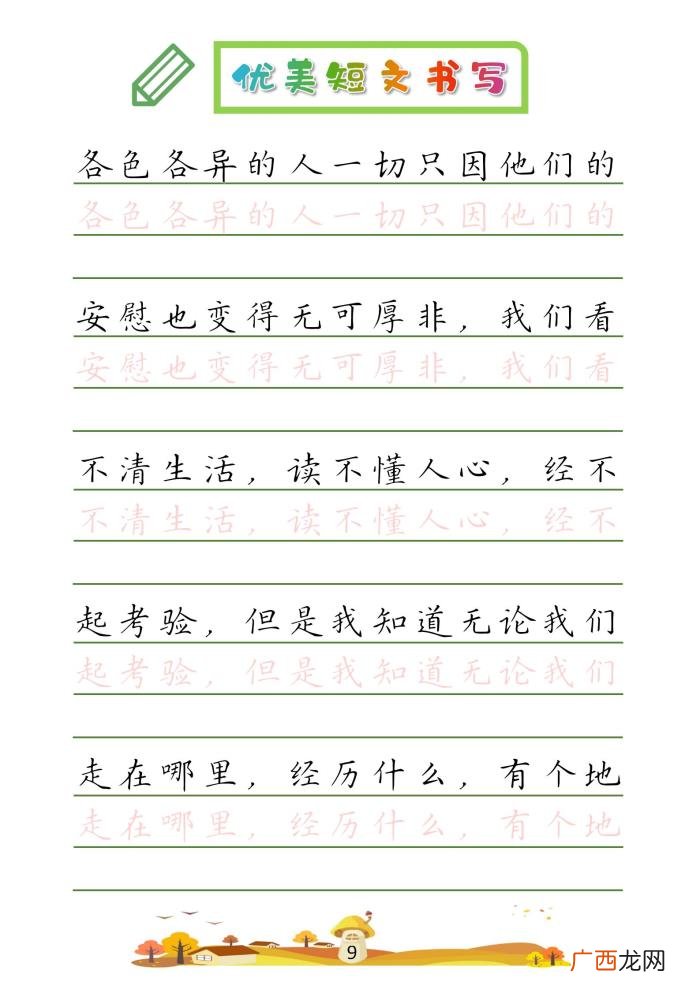 优美短文书写
各色各异的人一切只因他们的
各色各异的人一切只因他们的
安慰也变得无可厚非，我们看
安慰也变得无可厚非，我们看
不清生活，读不懂人心，经不
不清生活，读不懂人心，经不
起考验，但是我知道无论我们
起考验，但是我知道无论我们
走在哪里，经历什么，有个地
走在哪里，经历什么，有个地
9
广西龙网